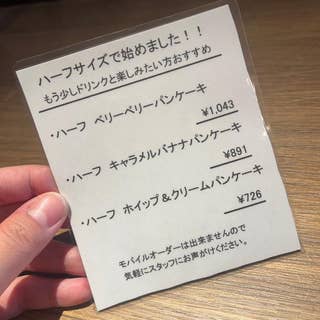 ハーフサイズで始めました！！
もう少しドリンクと楽しみたい方おすすめ
・ハーフ ベリーベリーパンケーキ
¥1,043
・ハーフ キャラメルバナナパンケーキ
¥891
・ハーフ ホイップ＆クリームパンケーキ
¥726
モバイルオーダーは出来ませんので
気軽にスタッフにお声がけください。